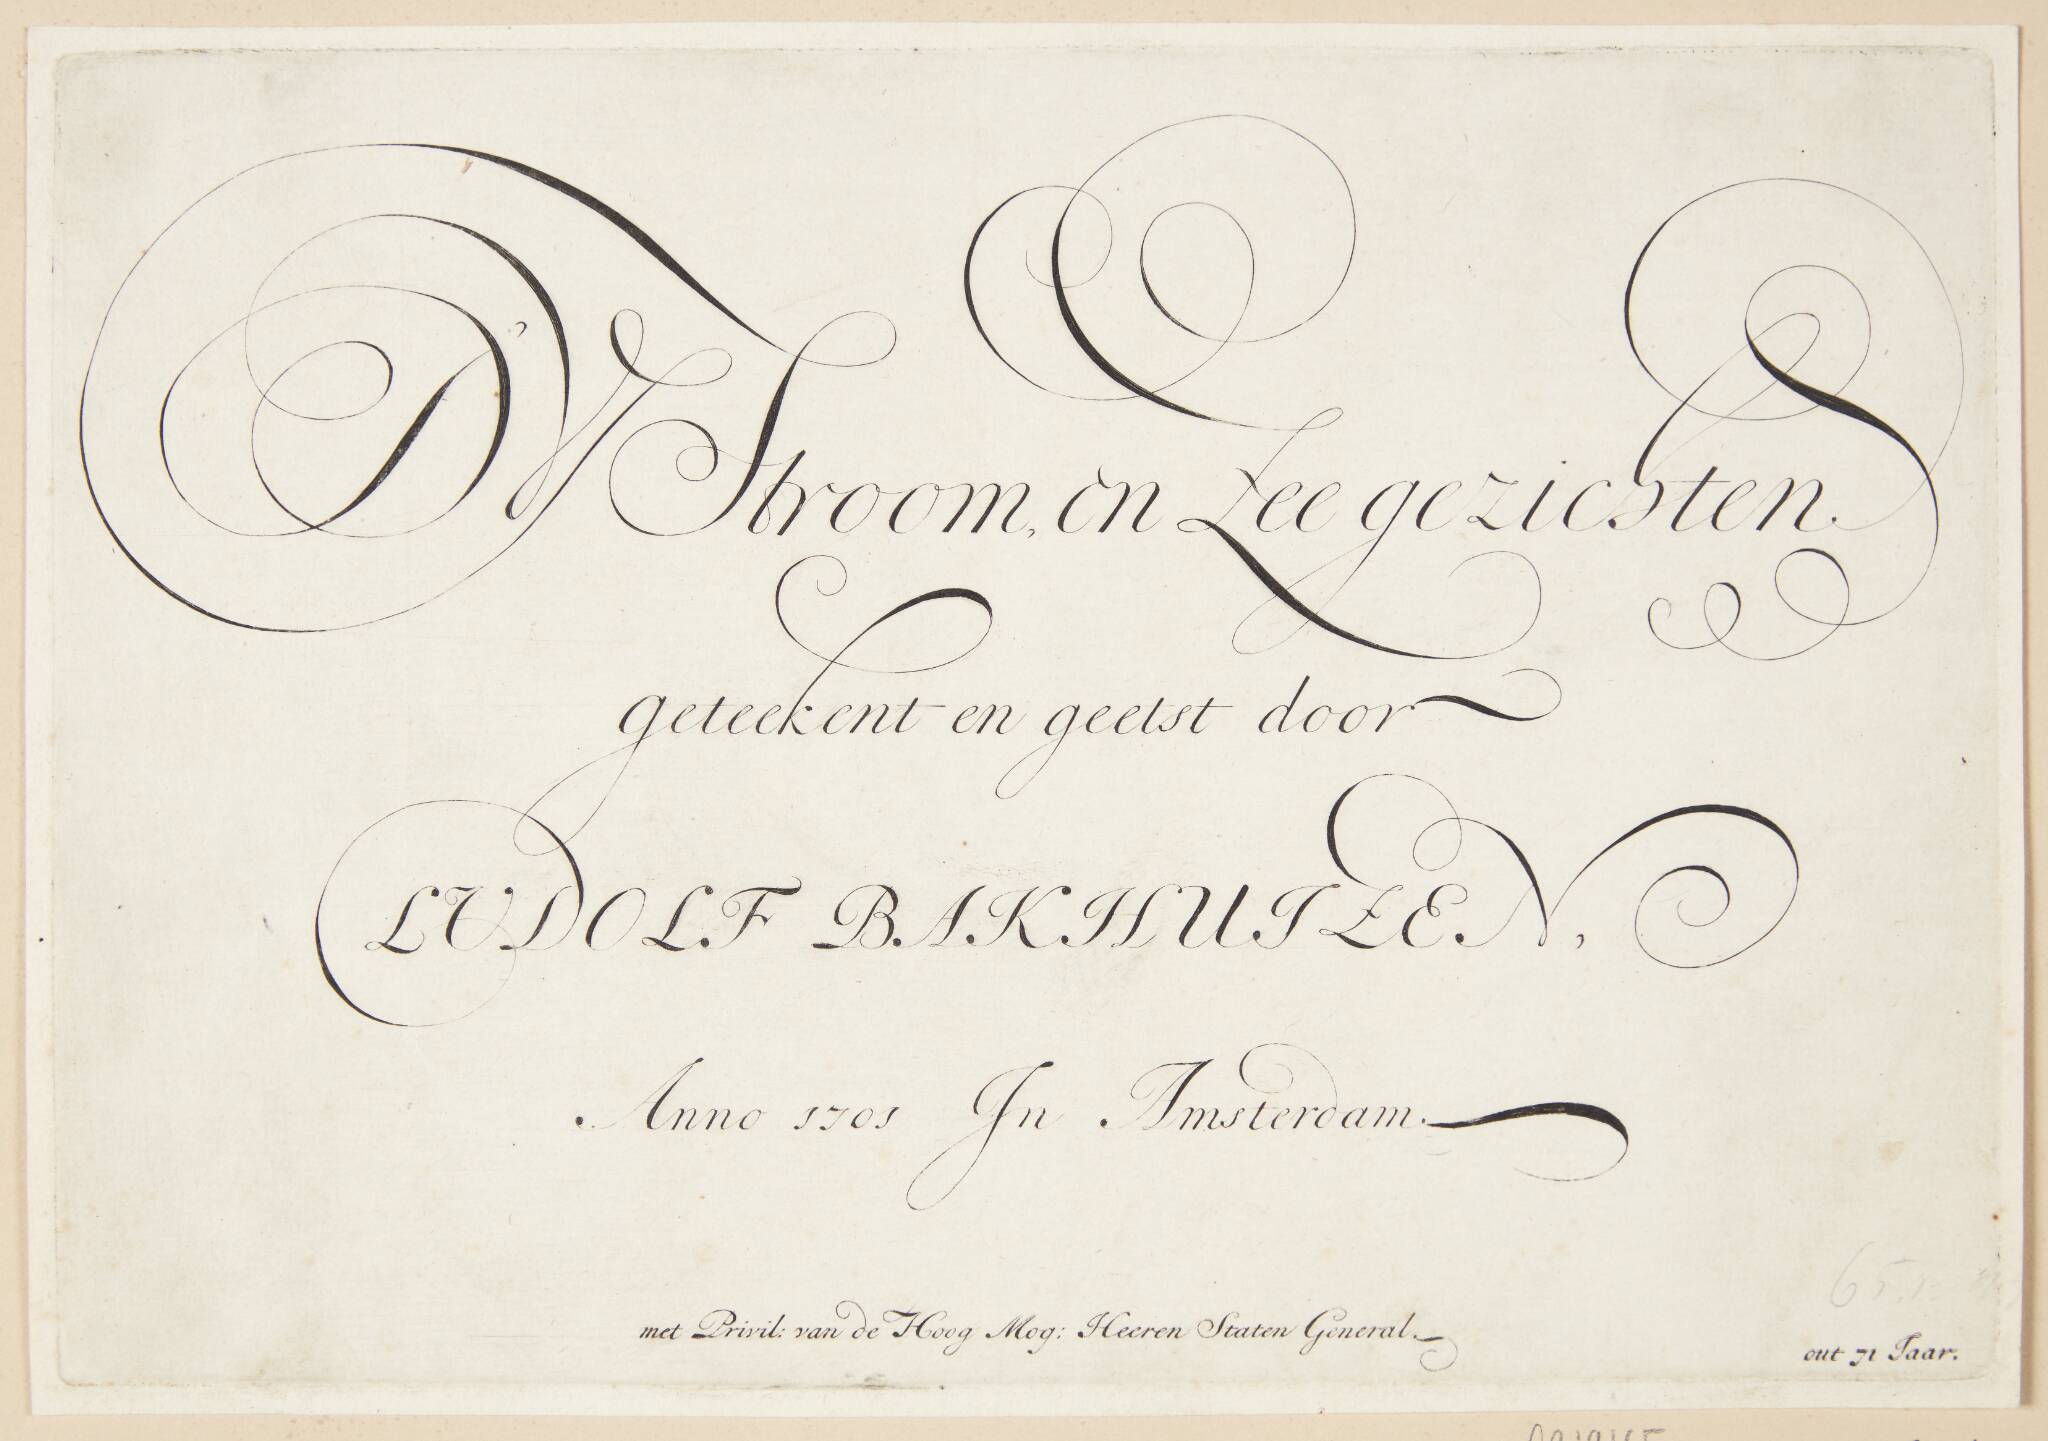 D'Y Stroom, en Zee gezichten.
geteekent en geetst door
LVDOLF BAKHUIZEN,
Anno 1701 In Amsterdam.
met Privil: van de Hoog Mog: Heeren Staten General.
out 71 Jaar.